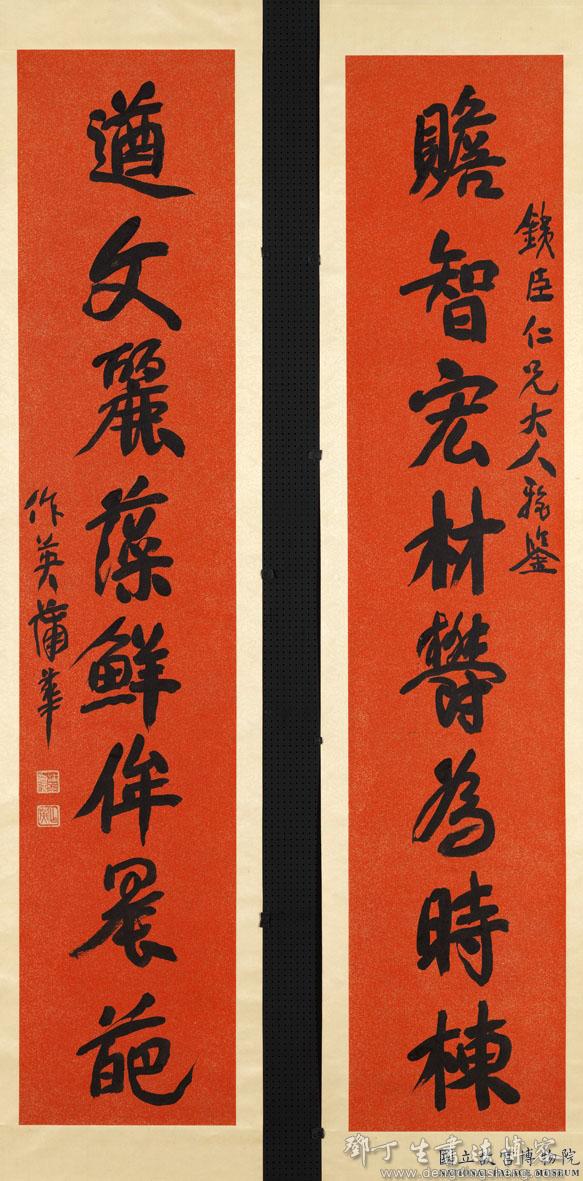 贍智宏材鬱為時棟
銕臣仁兄大人雅鑒
遒文麗藻鮮侔晨葩
作英蒲華
鄧丁生書法博客
www.dengdingsheng.com
國立故宮博物院
NATIONAL PALACE MUSEUM